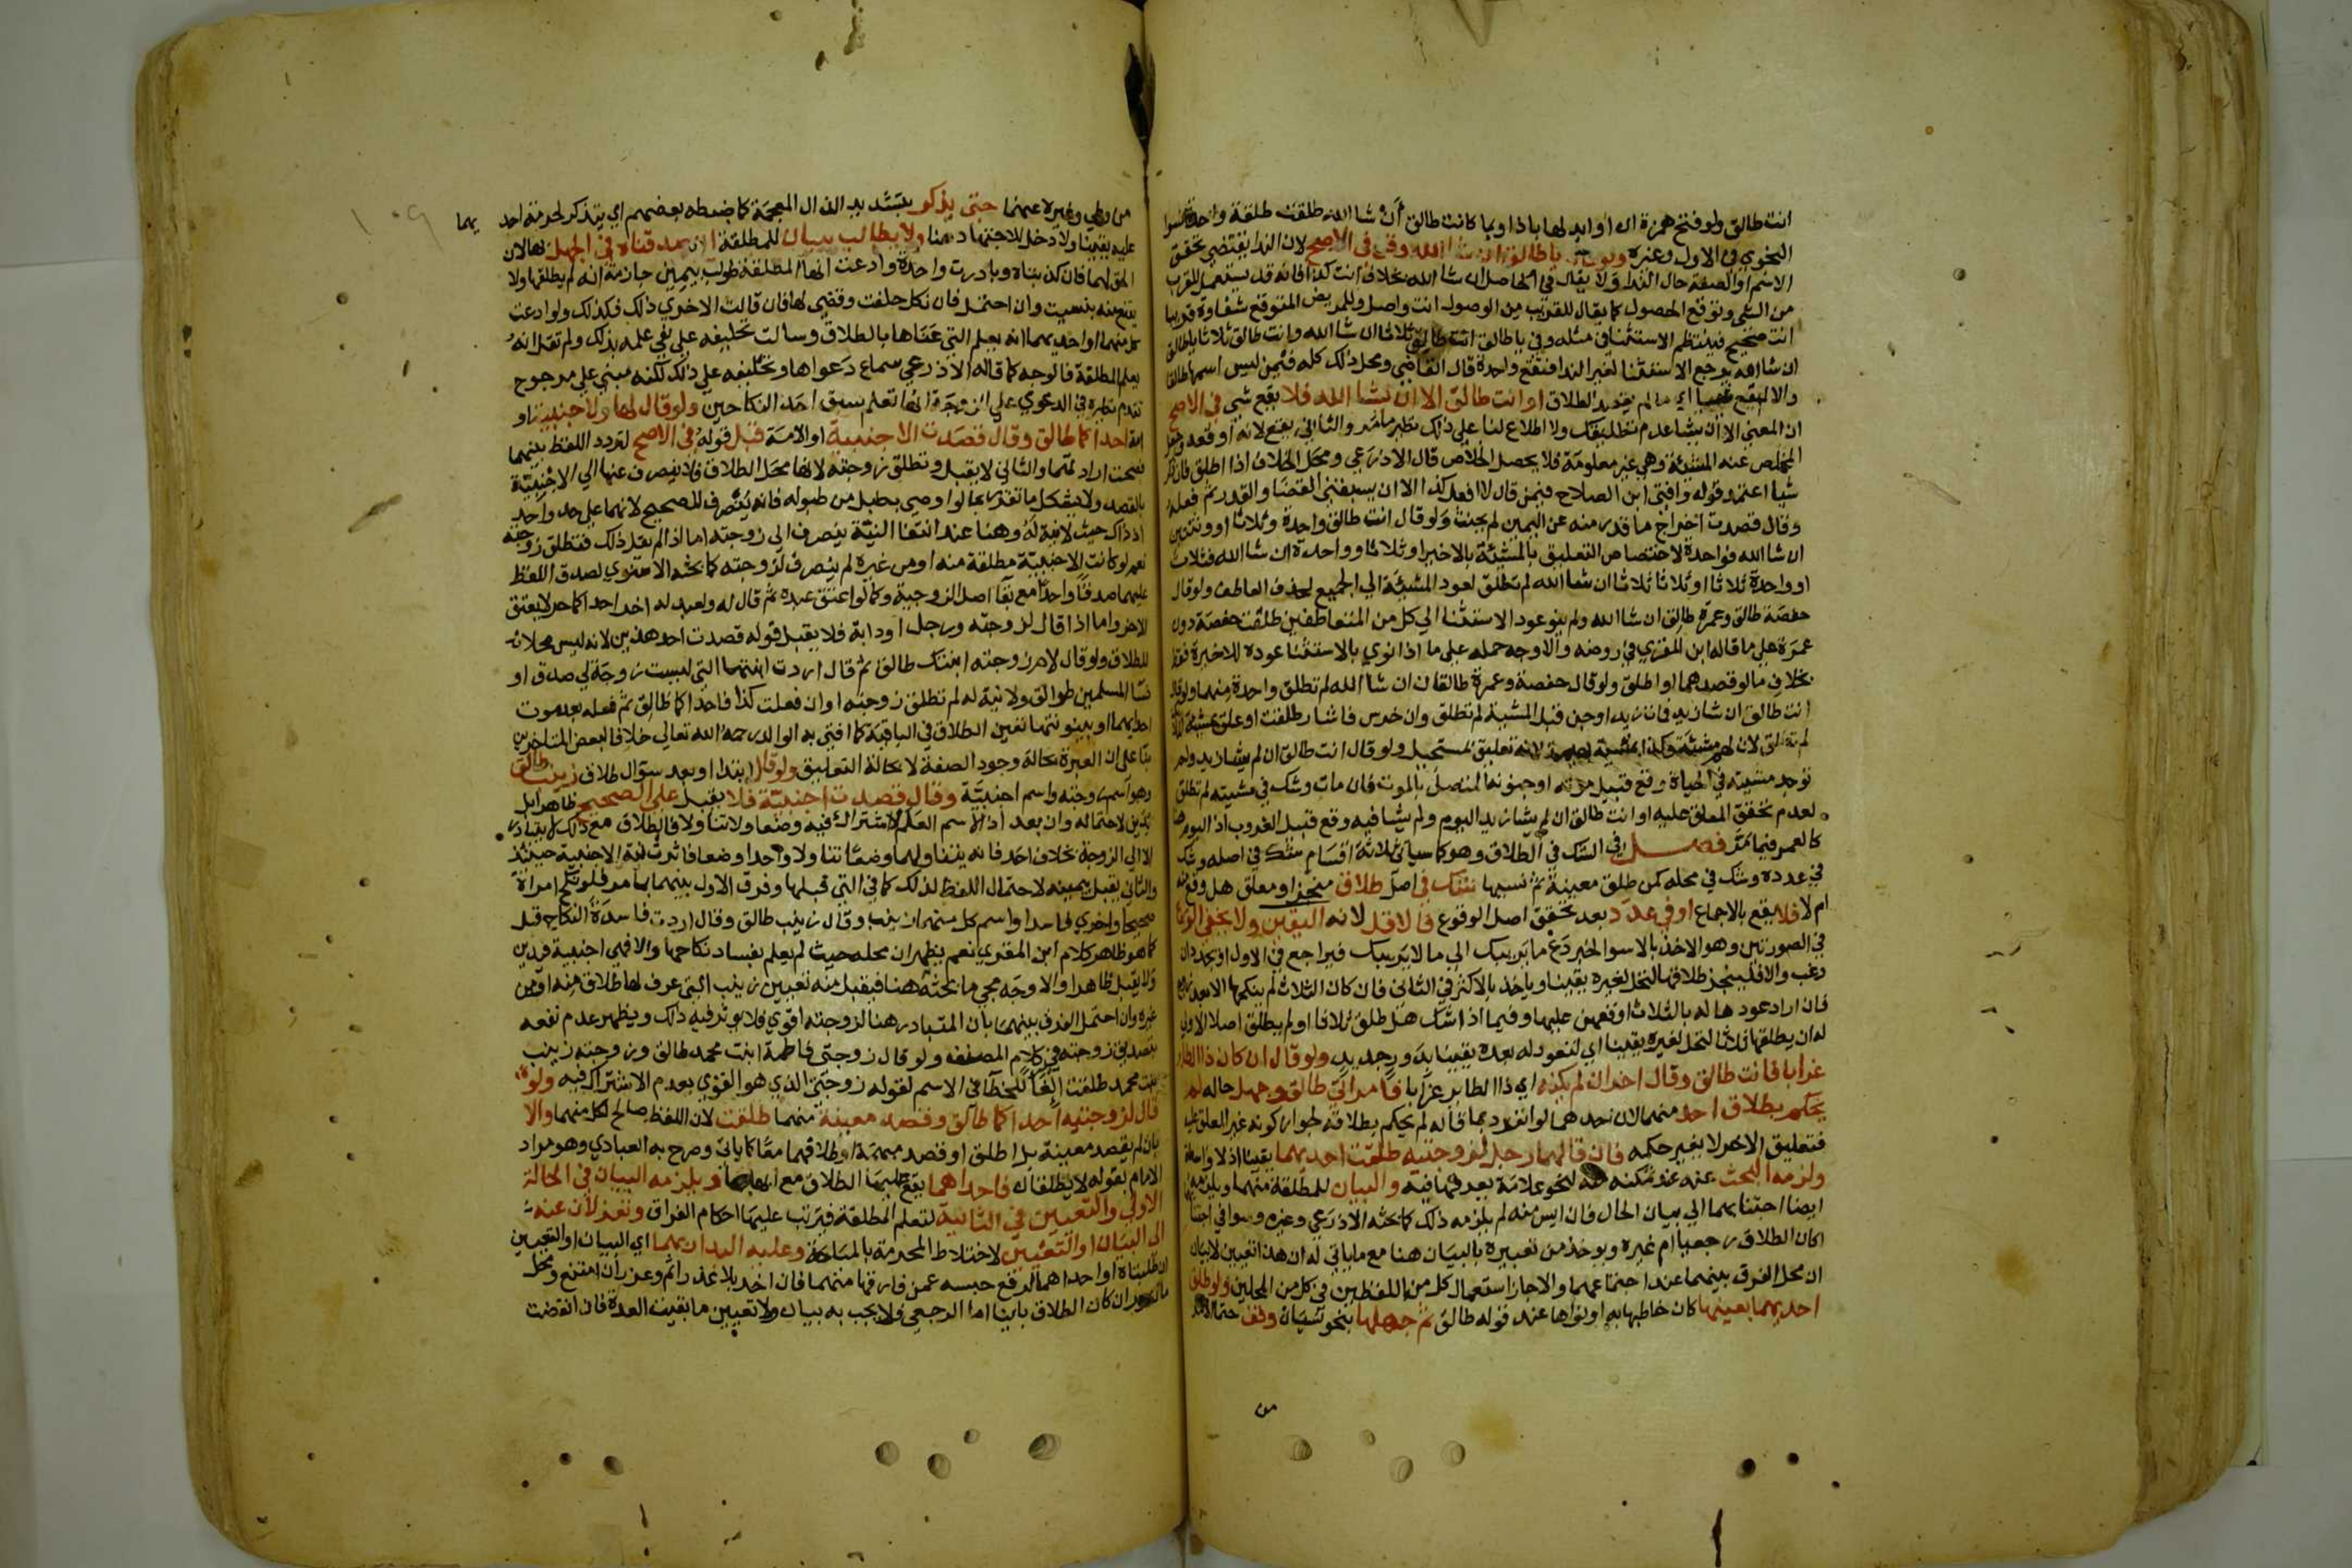 انت طالق ولو فتح همزة ان او ابدلها باذا او بما كانت طالق أن شا الله طلقت طلقة واحدة
النحوي في الاول وغيره يا طالق ان شا الله وقع في الاصح لان الندا يقتضي تحقق
الاسم او الصفة حال الندا ولا يقال في الحاصل ان شا الله بخلاف انت كذا فانه قد يستعمل للقرب
من الشي وتوقع الحصول كما يقال للقريب من الوصول انت واصل وللمريض المتوقع شفاوه قريبا
انت صحيح فينتظم الاستثنا في مثله وفي يا طالق انت طالق ثلاثا ان شا الله وانت طالق ثلاثا يا طالق
ان شا الله يرجع الاستثنا لغير الندا فتقع واحدة قال القاضي ومحل ذلك كله فيمن ليس اسمها طالقا
والا لم يقع شي اي ما لم يقصد الطلاق او انت طالق الا ان يشا الله فلا يقع شي في الاصح
ان المعنى الا ان يشا عدم تطليقك ولا اطلاع لنا على ذلك نظير ما مر والثاني يقع لانه اوقعه وجعل
المخلص عنه المشيئة وهي غير معلومة فلا يحصل الخلاص قال الاذرعي ومحل الخلاف اذا اطلق فان ذكر
شيا اعتمد قوله وافتى ابن الصلاح فيمن قال لا افعل كذا الا ان يسبقني القضا والقدر ثم فعله
وقال قصدت اخراج ما قدر منه عن اليمين لم يحنث ولو قال انت طالق واحدة وثلاثا او وثنتين
ان شا الله فواحدة لاختصاص التعليق بالمشيئة بالاخير او ثلاثا وواحدة ان شا الله فثلاث
او واحدة ثلاثا او ثلاثا ثلاثا ان شا الله لم تطلق لعود المشيئة الى الجميع لحذف العاطف ولو قال
حفصة طالق وعمرة طالق ان شا الله ولم ينو عود الاستثنا الى كل من المتعاطفين طلقت حفصة دون
عمرة على ما قاله ابن المقري في روضه والاوجه حمله على ما اذا نوى بالاستثنا عوده للاخيرة فقط
بخلاف ما لو قصدهما او اطلق ولو قال حفصة وعمرة طالقان ان شا الله لم تطلق واحدة منهما ولو قال
انت طالق ان شا زيد فمات زيد او جن قبل المشية لم تطلق وان خرس فاشار طلقت او علق بمشية
لم تطلق لان لهم مشيئة وكذا بمشية بهيمة لانه تعليق بمستحيل ولو قال انت طالق ان لم يشا زيد ولم
توجد مشيته في الحياة وقع قبيل موته او جنونه المتصل بالموت فان مات وشك في مشيته لم تطلق
لعدم تحقق المعلق عليه او انت طالق ان لم يشا زيد اليوم ولم يشا فيه وقع قبيل الغروب اذ اليوم هنا
كالعمر فيما مر فصل في الشك في الطلاق وهو كما سياتي ثلاثة اقسام شك في اصله وشك
في عدده وشك في محله كمن طلق معينة ثم نسيها شك في اصل طلاق منجز او معلق هل وقع
ام لا فلا يقع بالاجماع او في عدد بعد تحقق اصل الوقوع فالاقل لانه اليقين ولا يخفى الورع
في الصورتين وهو الاخذ بالاسوا لخبر دع ما يريبك الى ما لا يريبك فيراجع في الاول او يجدد ان
رغب والا فلينجز طلاقها لتحل لغيره يقينا وياخذ بالاكثر في الثاني فان كان الثلاث لم ينكحها الا بعد زوج
فان اراد عودها له بالثلاث اوقعهن عليها وفيما اذا شك هل طلق ثلاثا او لم يطلق اصلا الاولى
له ان يطلقها ثلاثا لتحل لغيره يقينا اي لتعود له بعده يقينا بد ورجديد ولو قال ان كان ذا الطاير
غرابا فانت طالق وقال اخر ان لم يكنه اي ذا الطاير غرابا فامراتي طالق وجهل حاله لم
يحكم بطلاق احد منهما لان احدهما لو انفرد بما قاله لم يحكم بطلاقه لجواز كونه غير المعلق عليه
فتعليق الاخر لا يغير حكمه فان قالهما رجل لزوجتيه طلقت احديهما يقينا اذ لا واسطة
ولزمه البحث عنه عند تمكنه منه لنحو علامة يعرفها فيه والبيان للمطلقة منهما ويلزمه
ايضا اجتنابهما الى بيان الحال فان ايس منه لم يلزمه ذلك كما بحثه الاذرعي وغيره وسوا في اجتنابهما
اكان الطلاق رجعيا ام غيره ويوخذ من تعبيره بالبيان هنا مع ما ياتي له ان هذا تعيين لا بيان
ان محل الفرق بينهما عند اجتماعهما والا جاز استعمال كل من اللفظين في كل من المحلين ولو طلق
احديهما بعينها كان خاطبها به او نواها عند قوله طالق ثم جهلها بنحو نسيان وقف حتما الامر
من
من وطي وغيره عنهما حتى يذكر بتشديد الذال المعجمة كما ضبطه بعضهم اي يتذكر لحرمة احد يهما
عليه يقينا ولا دخل للاجتهاد هنا ولا يطالب ببيان للمطلقة ان صدقناه في الجهل بها لان
الحق لهما فان كذبناه وبادرت واحدة وادعت انها المطلقة طولب بيمين جازمة انه لم يطلقها ولا
يقنع منه بنسيت وان احتمل فان نكل حلفت وقضي لها فان قالت الاخرى ذلك فكذلك ولو ادعت
كل منهما او احديهما انه يعلم التي عناها بالطلاق وسالت تحليفه على نفي علمه بذلك ولم تقل انه
يعلم المطلقة فالوجه كما قاله الاذرعي سماع دعواها وتحليفه على ذلك لكنه مبني على مرجوح
تقدم نظيره في الدعوى على الزوجة انها تعلم سبق احد النكاحين ولو قال لها ولاجنبية او
امة احداكما طالق وقال قصدت الاجنبية او الامة قبل قوله في الاصح لتردد اللفظ بينهما
فصحت ارادتها والثاني لا يقبل وتطلق زوجته لانها محل الطلاق فلا ينصرف عنها الى الاجنبية
بالقصد ولا يشكل ما تقرر بما لو اوصى بطبل من طبوله فانه ينصرف للصحيح لانهما على حد واحد
اذ ذاك حيث لا نية له وهنا عند انتفا النية ينصرف الى زوجته اما اذا لم يقل ذلك فتطلق زوجته
نعم لو كانت الاجنبية مطلقة منه او من غيره لم ينصرف لزوجته كما بحثه الاسنوي لصدق اللفظ
عليهما صدقا واحدا مع بقا اصل الزوجية وكما لو اعتق عبده ثم قال له ولعبد له اخر احداكما حر لا يعتق
الاخر واما اذا قال لزوجته ورجل او دابة فلا يقبل قوله قصدت احد هذين لانه ليس محلا
للطلاق ولو قال لام زوجته ابنتك طالق ثم قال اردت ابنتها التي ليست زوجة لي صدق او
نسا المسلمين طوالق ولا نية له لم تطلق زوجته او ان فعلت كذا فاحداكما طالق ثم فعله بعد موت
احديهما او بينونتها تعين الطلاق في الباقية كما افتى به الوالد رحمه الله تعالى خلافا لبعض المتاخرين
بنا على ان العبرة بحالة وجود الصفة لا بحالة التعليق ولو قال ابتدا او بعد سوال طلاق زينب طالق
وهو اسم زوجته واسم اجنبية وقال قصدت اجنبية فلا يقبل على الصحيح ظاهرا بل
يدين لاحتماله وان بعد اذ الاسم العلم لا اشتراك فيه وضعا ولا تناولا فالطلاق مع ذلك لا يتبادر
الا الى الزوجة بخلاف احد فانه يتناولهما وضعا تناولا واحدا وضعا فاثرت نية الاجنبية حينئذ
والثاني يقبل بيمينه لاحتمال اللفظ لذلك كما في التي قبلها وفرق الاول بينهما بما مر فلو نكح امراة
صحيحا واخرى فاسدا واسم كل منهما زينب وقال زينب طالق وقال اردت فاسدة النكاح قبل
كما هو ظاهر كلام ابن المقري نعم يظهر ان محله حيث لم يعلم بفساد نكاحها والا فهي اجنبية فيدين
ولا يقبل ظاهرا والاوجه مجي ما بحثه هنا فيقبل منه تعيين زينب التي عرف لها طلاق منه او من
غيره وان احتمل الفرق بينهما بان المتبادر هنا لزوجته اقوى فلا يوثر فيه ذلك ويظهر عدم نفعه
بتصديق زوجته في كلام المصنف ولو قال زوجتي فاطمة ابنت محمد طالق وزوجته زينب
بنت محمد طلقت الغا للخطا في الاسم لقوله زوجتي الذي هو القوي بعدم الاشتراك فيه ولو
قال لزوجتيه احداكما طالق وقصد معينة منهما طلقت لان اللفظ صالح لكل منهما والا
بان لم يقصد معينة بل اطلق او قصد مبهمة او طلاقهما معا كما ياتي وصرح به العبادي وهو مراد
الامام بقوله لا يطلقان فاحداهما يقع عليها الطلاق مع ابهامها ويلزمه البيان في الحالة
الاولى والتعيين في الثانية لتعلم المطلقة فيرتب عليها احكام الفراق وتعزلان عنه
الى البيان او التعيين لاختلاط المحرمة بالمباحة وعليه البدار بهما اي البيان او التعيين
ان طلبتاه او احداهما لرفع حبسه عمن فارقها منهما فان اخر بلا عذر اثم وعزر ان امتنع ومحل
ان كان الطلاق باينا اما الرجعي فلا يجب به بيان ولا تعيين ما بقيت العدة فان انقضت